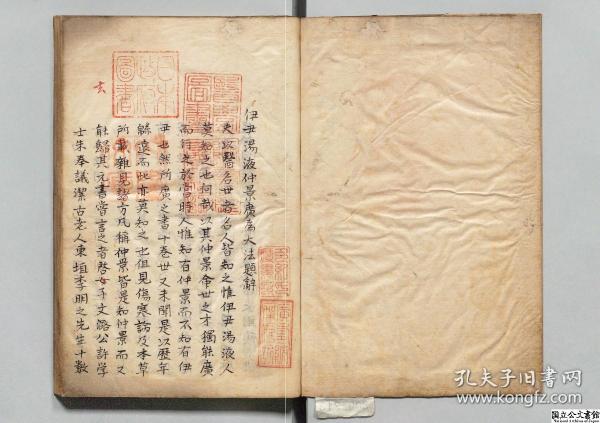 伊尹湯液仲景廣為大法題辭
夫以醫名世者名人皆知之惟伊尹湯液人
莫知之也何哉以其仲景命世之才獨能廣
而行之於當時人惟知有仲景而不知有伊
尹也然所廣之書十卷世又未聞是以歷年
縣遠而此亦莫知之也但見傷寒論及本草
所載雜見諸方凡稱仲景皆是知仲景而又
能歸其元書嘗言之者啓玄子文潞公許學
士朱奉議潔古老人東垣李明之先生十數
玄
日本
政府
圖書
孔夫子旧书网
www.kongfz.com
国立公文書館
National Archives of Japan